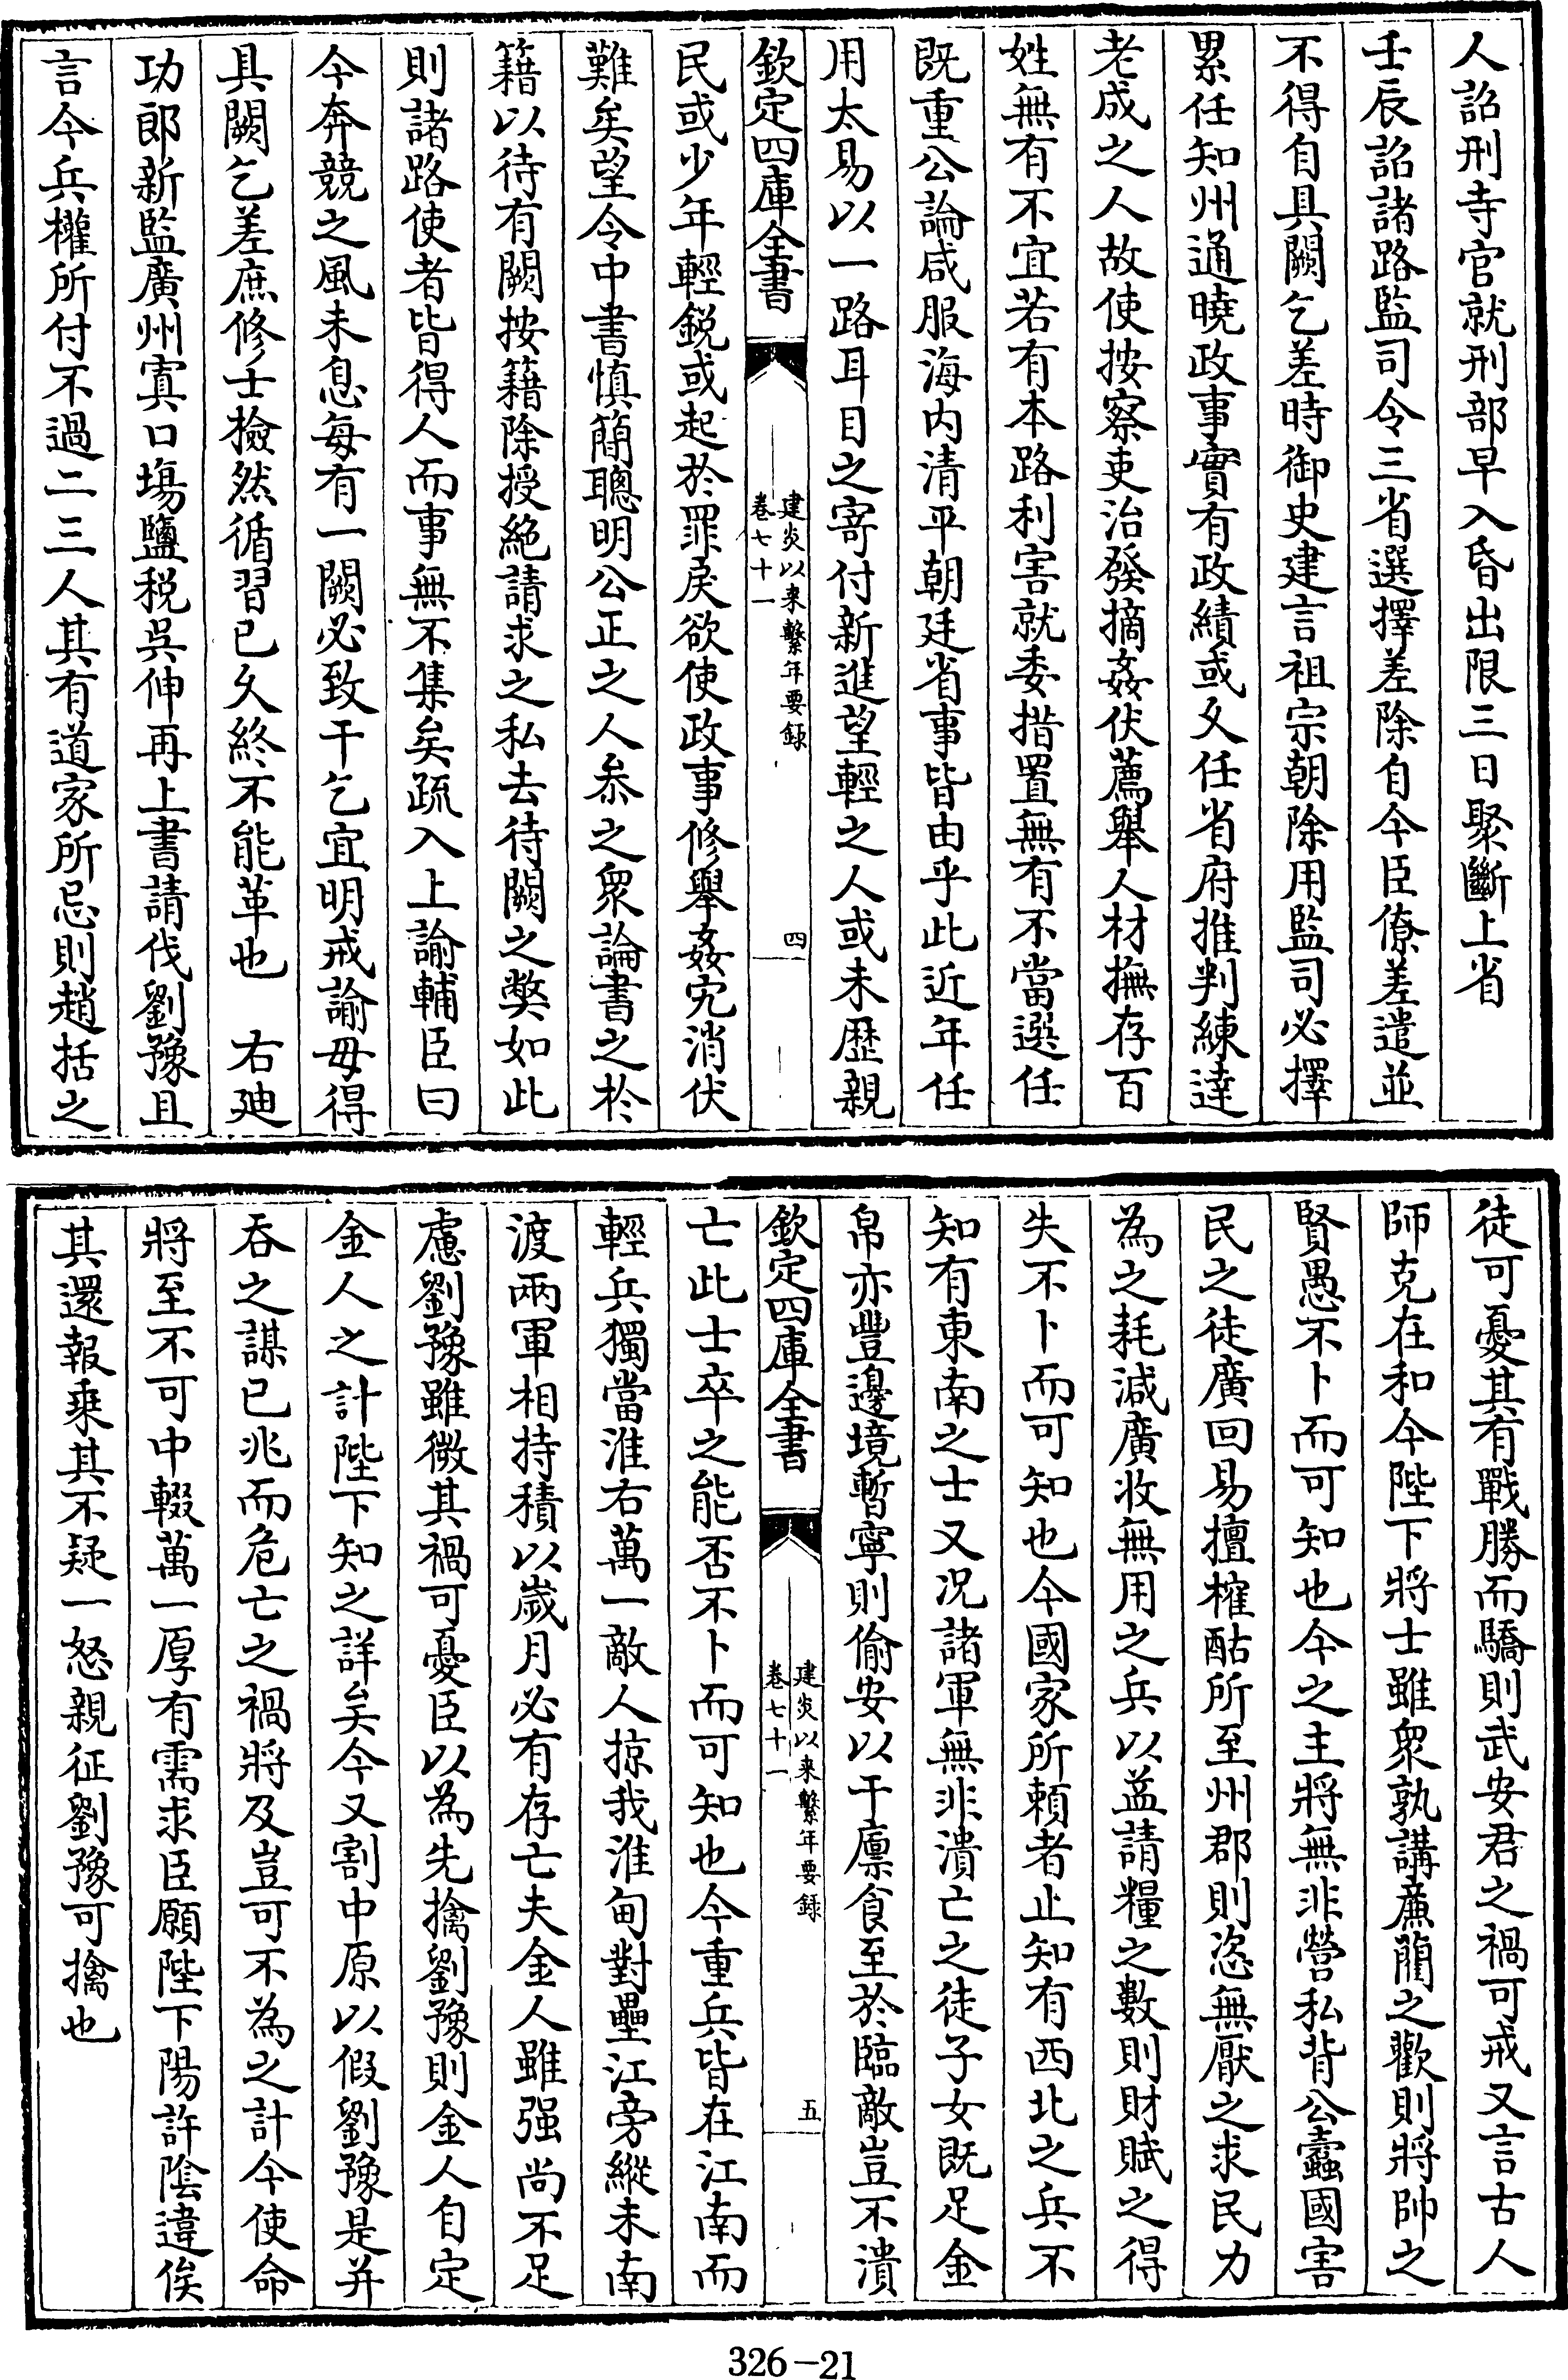 人詔刑寺官就刑部早入昏出限三日聚斷上省
壬辰詔諸路監司令三省選擇差除自今臣僚差遣並
不得自具闕乞差時御史建言祖宗朝除用監司必擇
累任知州通曉政事實有政績或久任省府推判練達
老成之人故使按察吏治發摘姦伏薦舉人材撫存百
姓無有不宜若有本路利害就委措置無有不當選任
既重公論咸服海内清平朝廷省事皆由乎此近年任
用太易以一路耳目之寄付新進望輕之人或未歴親
欽定四庫全書
建炎以來繫年要錄
卷七十一
四
民或少年輕鋭或起於罪戾欲使政事修舉姦宄消伏
難矣望令中書慎簡聰明公正之人叅之衆論書之於
籍以待有闕按籍除授絶請求之私去待闕之獘如此
則諸路使者皆得人而事無不集矣疏入上諭輔臣曰
今奔競之風未息每有一闕必致干乞宜明戒諭毋得
具闕乞差庶修士撿然循習已久終不能革也　右廸
功郎新監廣州寘口塲鹽税吳伸再上書請伐劉豫且
言今兵權所付不過二三人其有道家所忌則趙括之
徒可憂其有戰勝而驕則武安君之禍可戒又言古人
師克在和今陛下將士雖衆孰講廉藺之歡則將帥之
賢愚不卜而可知也今之主將無非營私背公蠹國害
民之徒廣回易擅榷酤所至州郡則恣無厭之求民力
為之耗減廣收無用之兵以益請糧之數則財賦之得
失不卜而可知也今國家所頼者止知有西北之兵不
知有東南之士又况諸軍無非潰亡之徒子女既足金
帛亦豐邊境暫寧則偷安以干廩食至於臨敵豈不潰
欽定四庫全書
建炎以來繫年要錄
卷七十一
五
亡此士卒之能否不卜而可知也今重兵皆在江南而
輕兵獨當淮右萬一敵人掠我淮甸對壘江旁縱未南
渡兩軍相持積以嵗月必有存亡夫金人雖强尚不足
慮劉豫雖微其禍可憂臣以為先擒劉豫則金人自定
金人之計陛下知之詳矣今又割中原以假劉豫是并
吞之謀已兆而危亡之禍將及豈可不為之計今使命
將至不可中輟萬一厚有需求臣願陛下陽許隂違俟
其還報乗其不疑一怒親征劉豫可擒也
326-21